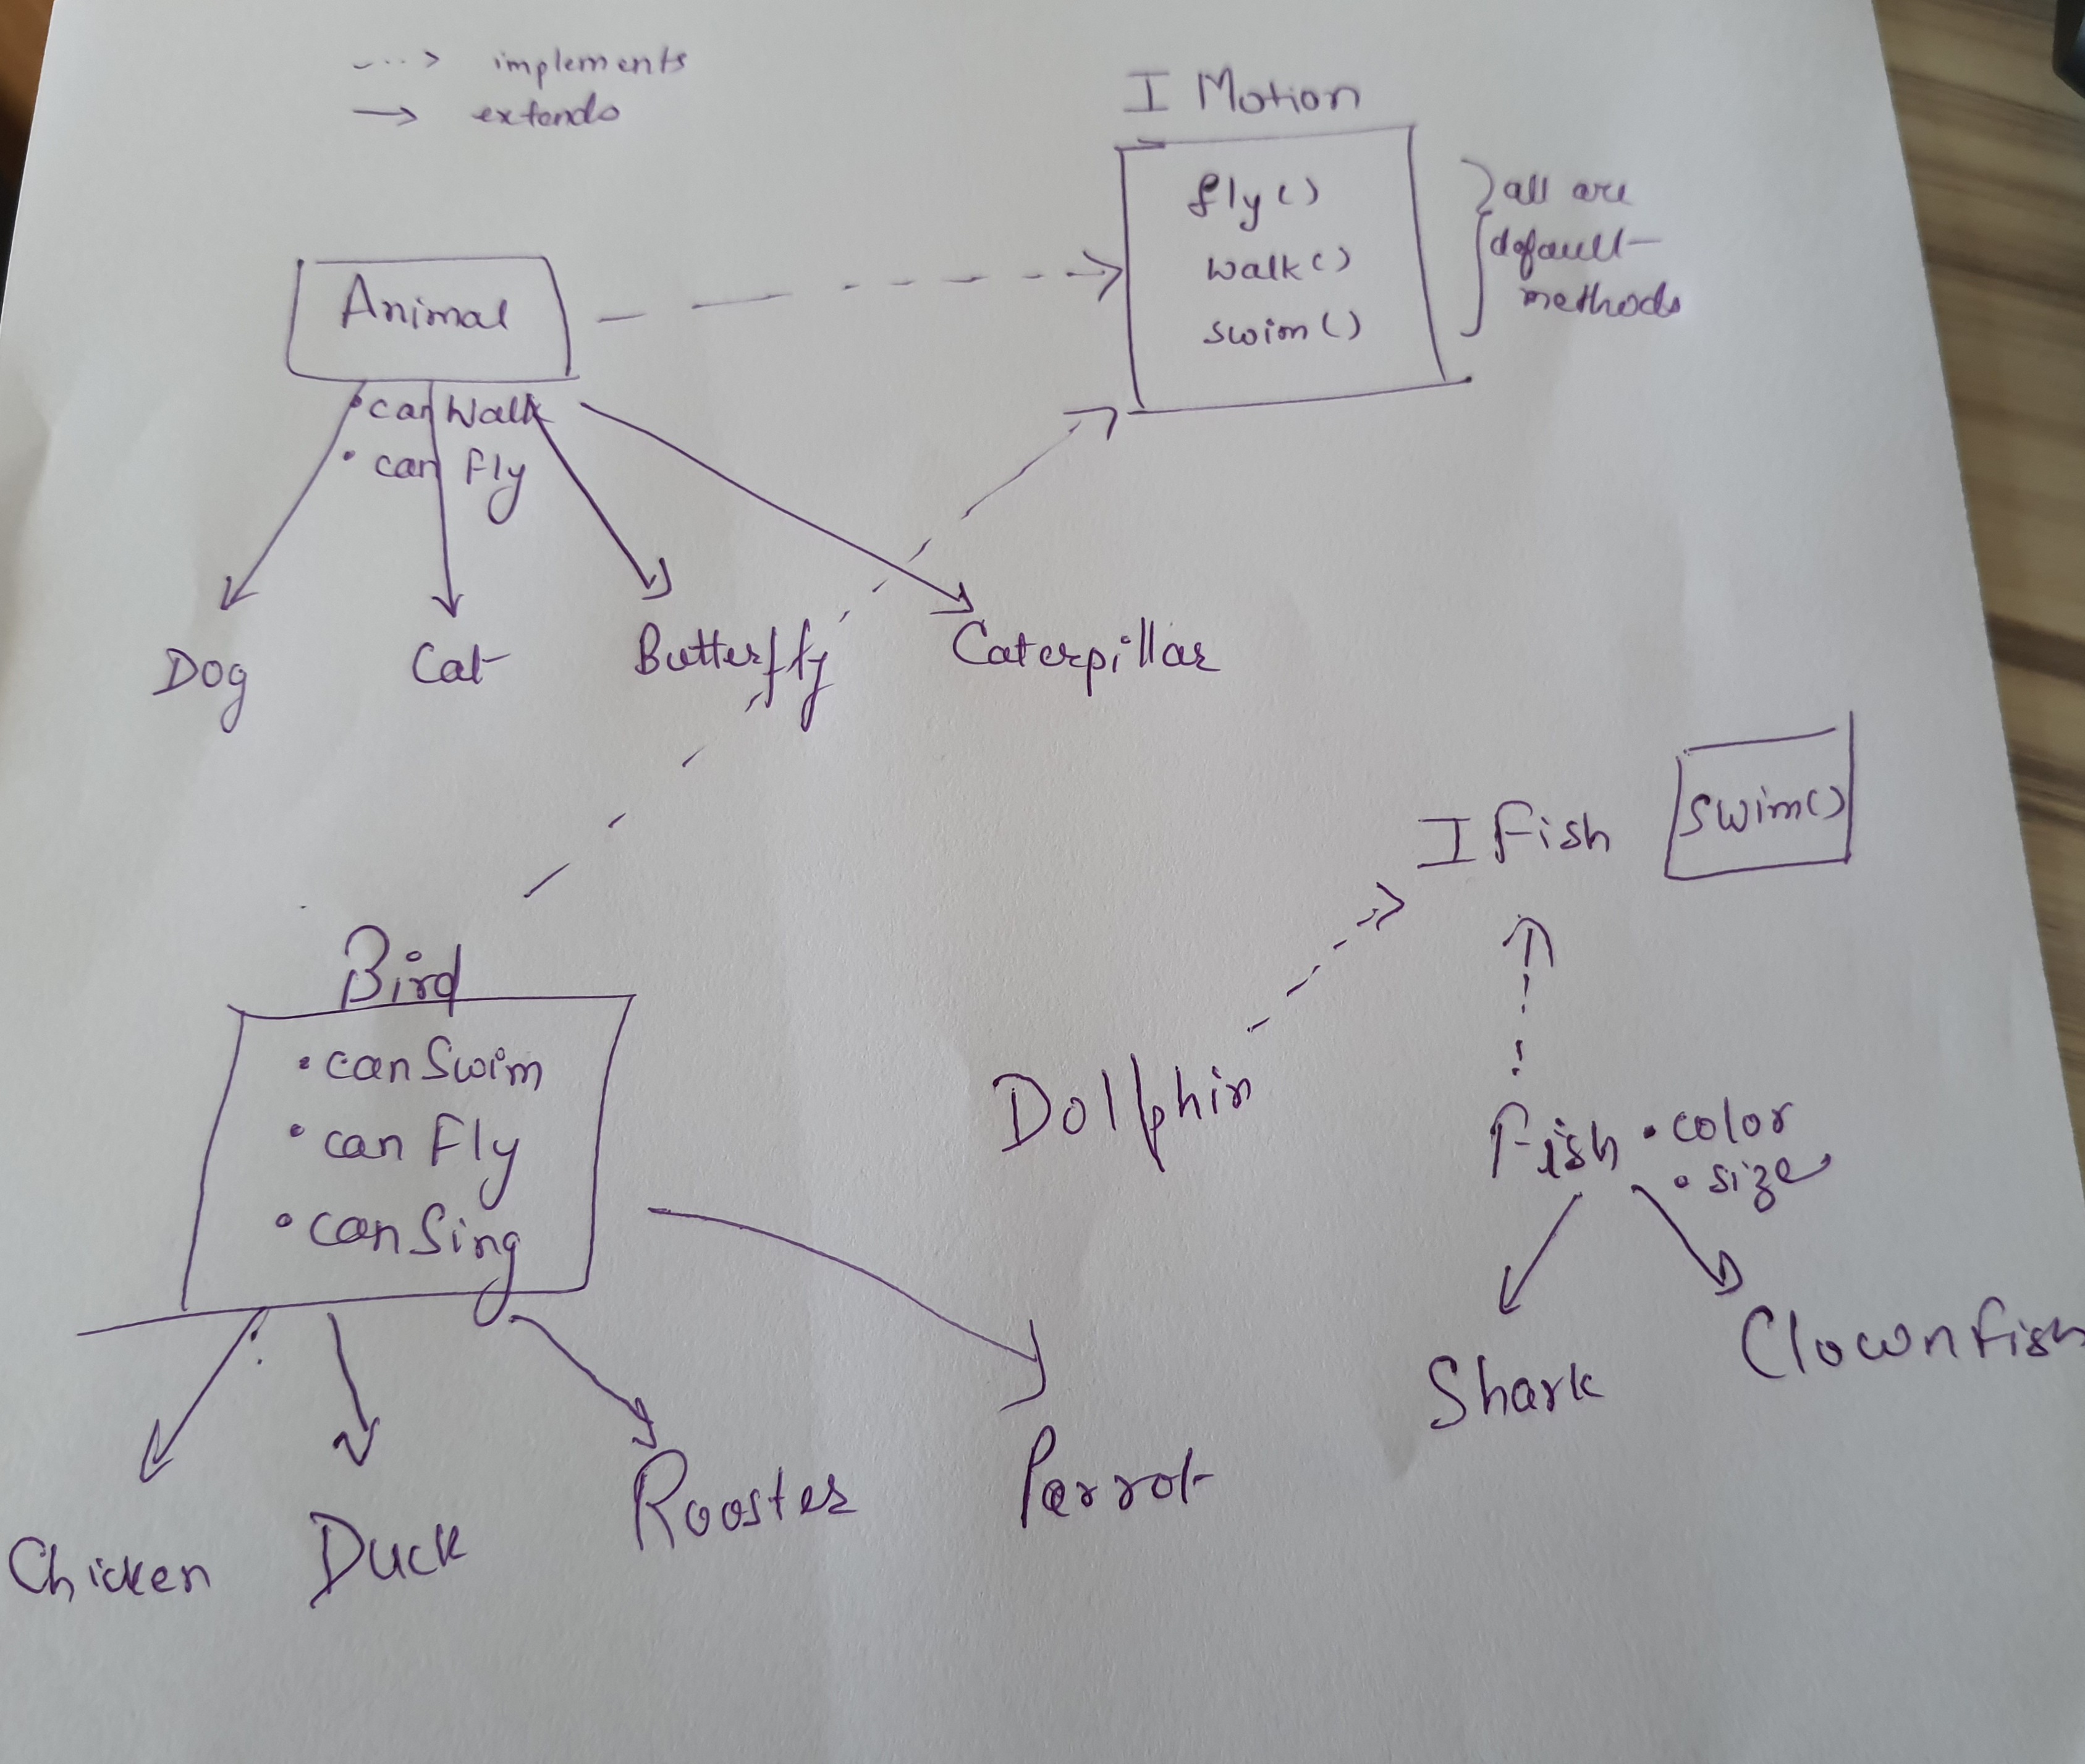 implements
extends
I Motion
fly()
walk()
swim()
all are
default
methods
Animal
• can Walk
• can Fly
Dog
Cat
Butterfly
Caterpillar
I Fish
swim()
Bird
• can Swim
• can Fly
• can Sing
Dolphin
Fish • color
• size
Shark
Clownfish
Chicken
Duck
Rooster
Parrot